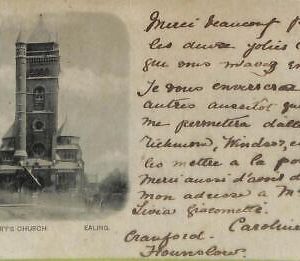 Merci beaucoup p
les deux jolies c
que vous m'avez en
Je vous enverrai
autres aussitôt qu
me permettra d'alle
Richmond, Windsor, e
les mettre à la po
Merci aussi d'avoir d
mon adresse à M
Livia Giacometti.
Caroline
Cranford.
Hounslow.
Y'S CHURCH. EALING.